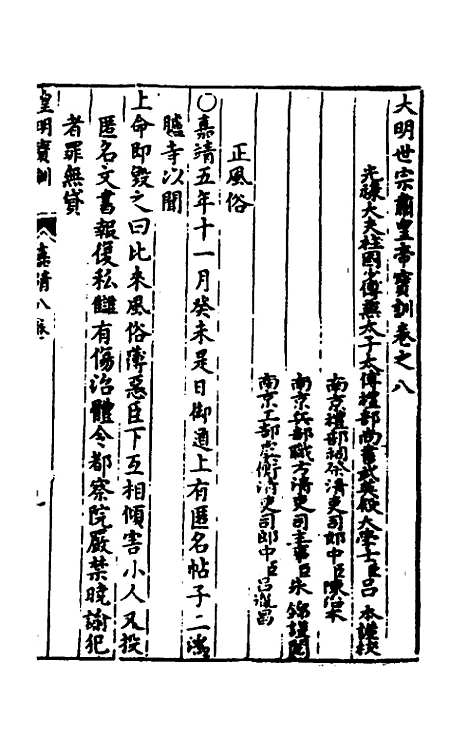 大明世宗肅皇帝寶訓卷之八
光祿大夫柱國少傅兼太子太傅禮部尚書武英殿大學士臣呂 本謹校
南京禮部祠祭清吏司郎中臣陳治本
南京兵部職方清吏司主事臣朱 錦謹閱
南京工部虞衡清吏司郎中臣呂胤昌
正風俗
○嘉靖五年十一月癸未是日御道上有匿名帖子二鴻
臚寺以聞
上命即毀之曰比來風俗薄惡臣下互相傾害小人又投
匿名文書報復私讎有傷治體令都察院嚴禁曉諭犯
者罪無貸
皇明寶訓 嘉靖八卷 一